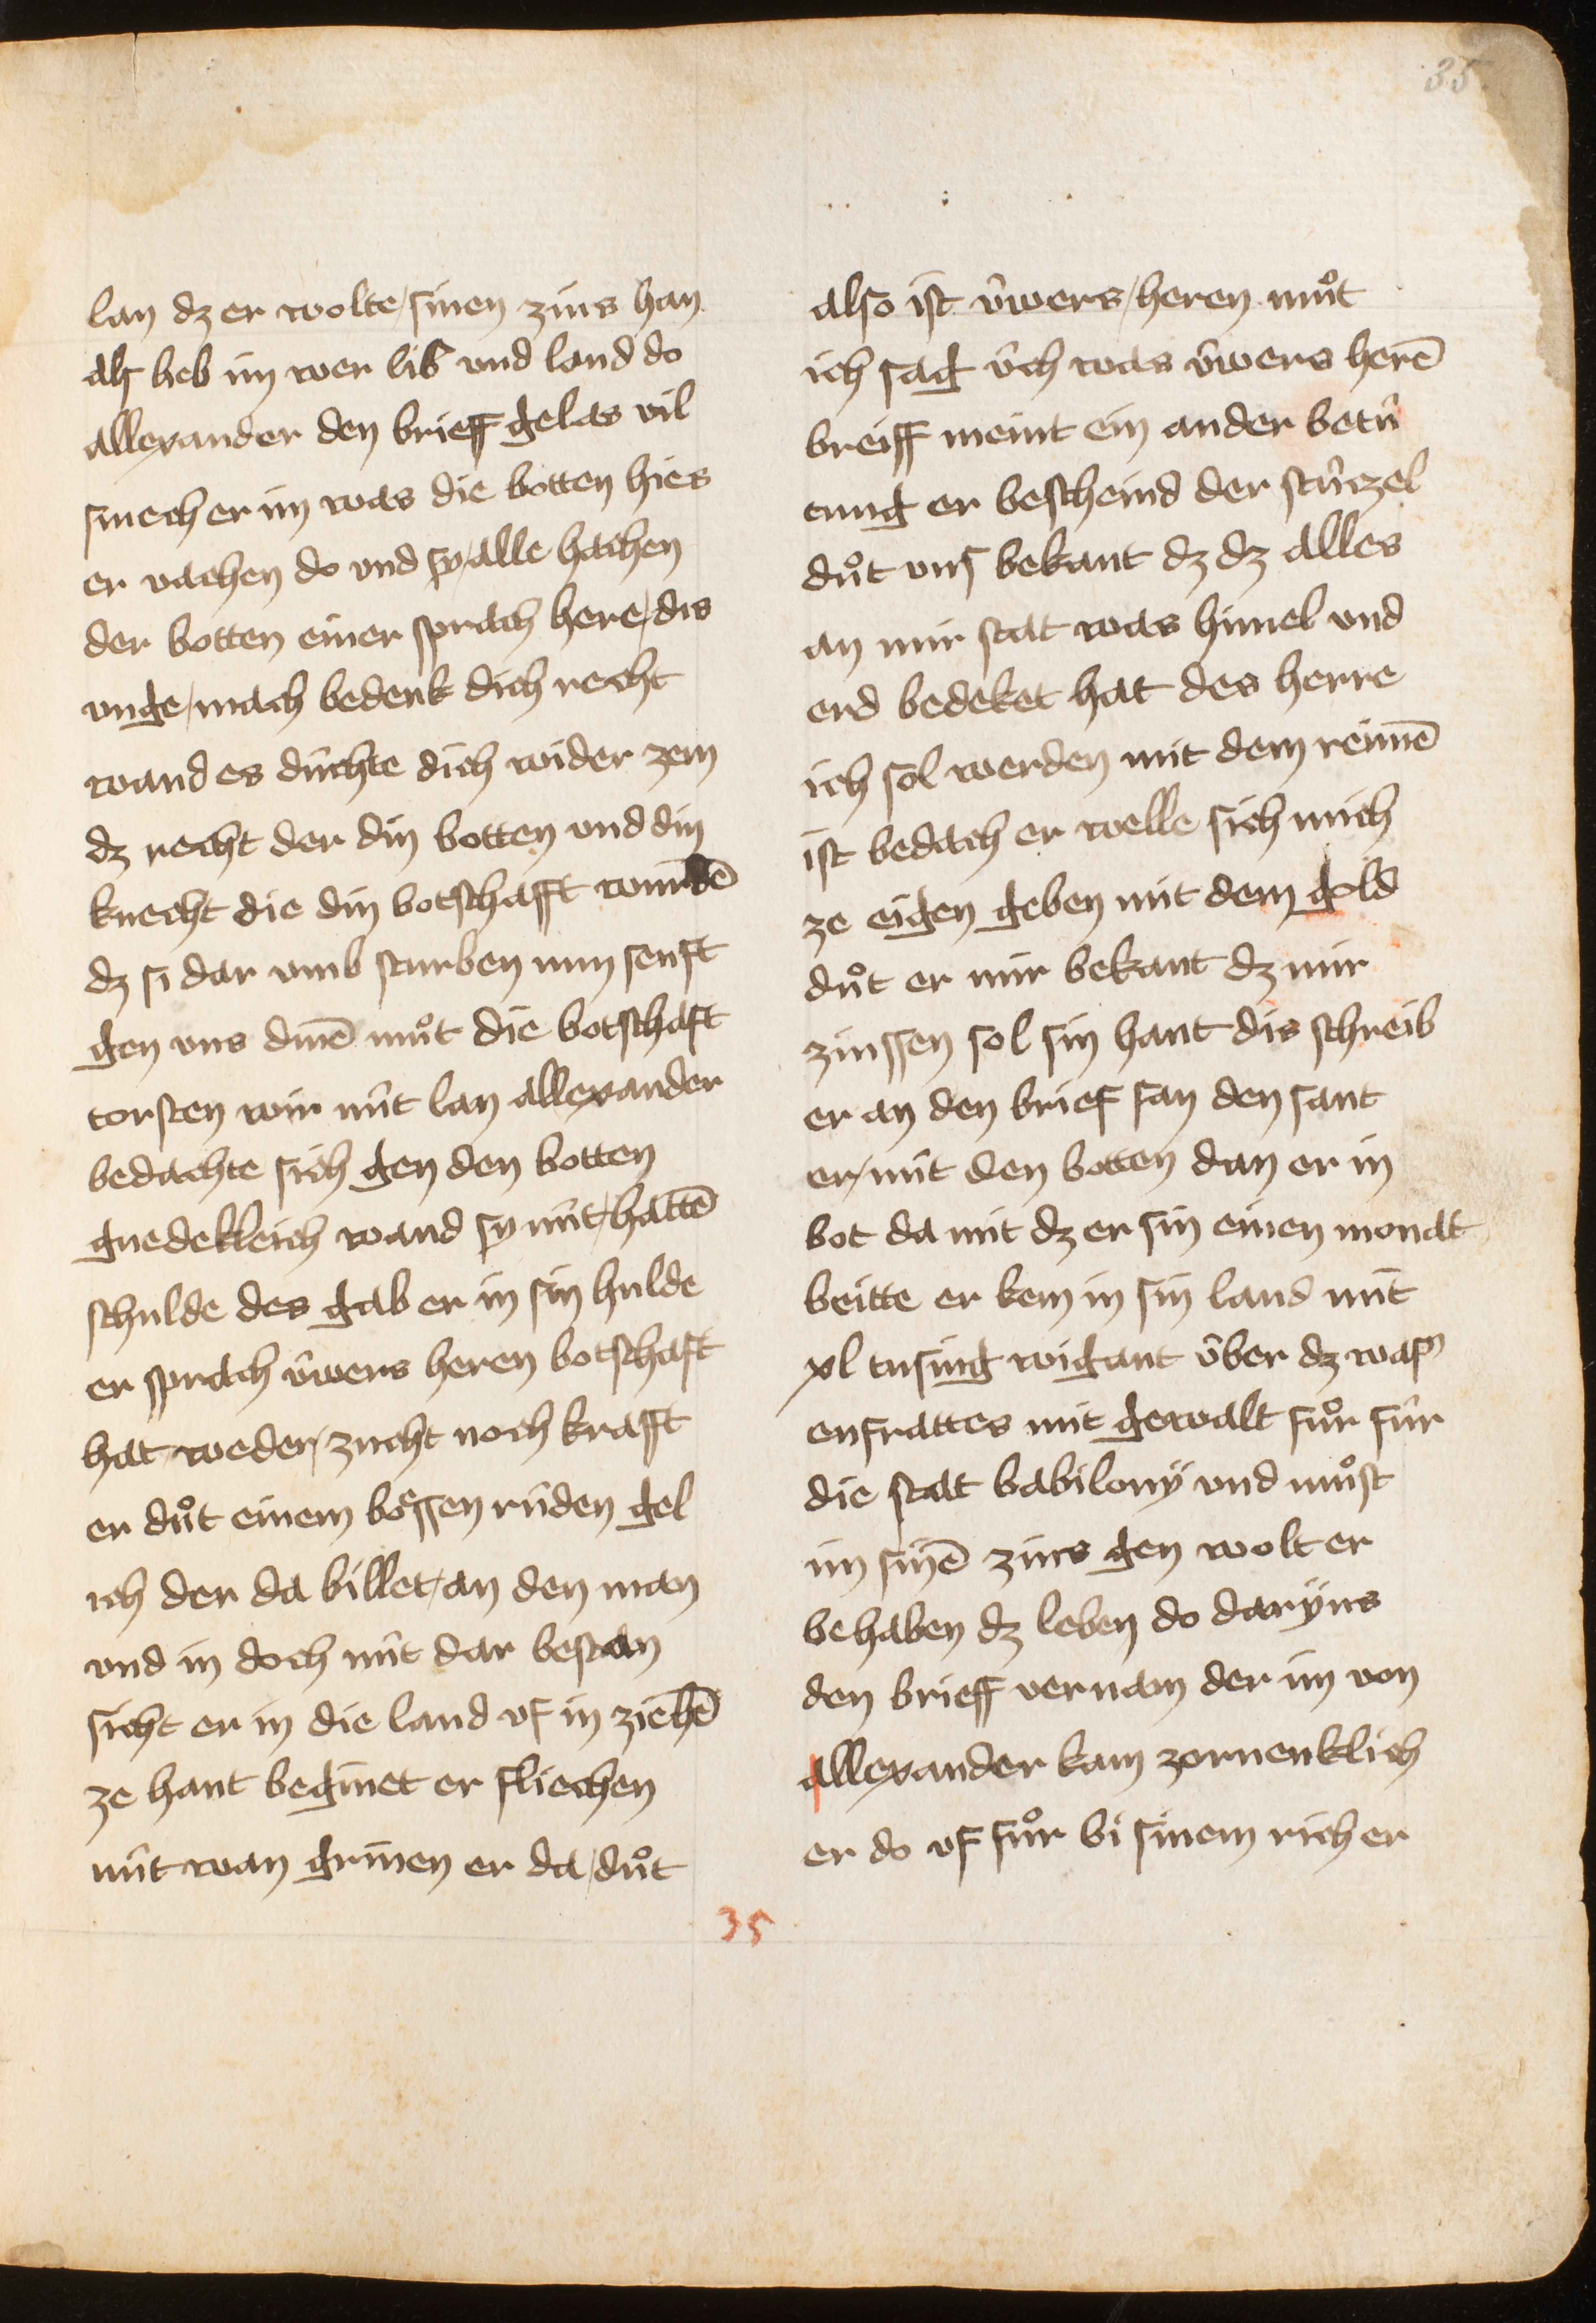 35.
lan dz er wolte / sinen zins han
als heb im wer lib vnd land do
allexander den brieff gelas vil
smech er im was die botten hies
er vachen do vnd sy / alle hachen
der botten einer sprach here / dis
vnge / mach bedenk dich recht
wand es dûchte dich wider zem
dz recht der din botten vnd din
knecht die din botschafft wurdē
dz si dar vmb sturben nun senft
gen vns dinē muͦt die botschaft
torsten wir nût lan allexander
bedachte sich gen den botten
gnedekleich wand sy nût / hattē
schulde des gab er in sin hulde
er sprach v̂wers heren botschaft
hat / weder / zucht noch krafft
er duͦt einem boͤssen rûden gel
ich der da billet / an den man
vnd in doch nût dar bestan
sicht er in die land vf in ziehē
ze hant beginet er fliechen
nût wan grinen er da / duͦt
also ist v̂wers / heren muͦt
ich sag v̂ch was v̂wers herē
breiff meint ein ander betû
tung er bescheind der stûrzel
duͦt vns bekant dz dz alles
an mir stat was himel vnd
erd bedeket hat des herre
ich sol werden mit dem reimē
ist bedach er welle sich mich
ze eigen geben mit dem gold
duͦt er mir bekant dz mir
zinssen sol sin hant dis schreib
er an den brief san den sant
er / mit den botten dan er in
bot da mit dz er sin einen monat
beitte er kem in sin land mit
xl tusing wigant v̂ber dz wasꝰ
enfrattes mit gewalt fuͦr fûr
die stat babilony vnd muͦst
im sinē zins gen wolt er
behaben dz leben do daryus
den brieff vernam der im von
allexander kam zornenklich
er do vf fuͦr bi sinem richer
35